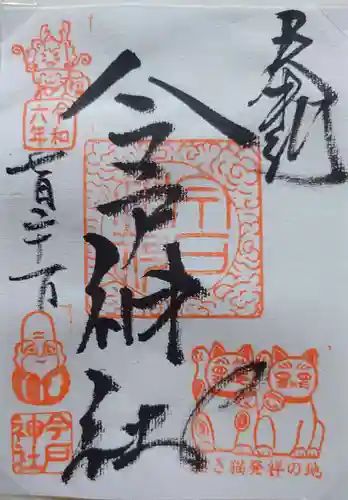 奉拝
今戸神社
令和
六年
七月二十一日
今戸
神社
招き猫発祥の地